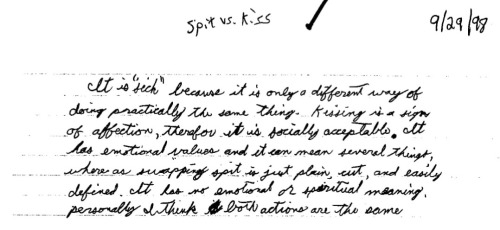 Spit vs. Kiss
9/29/98
It is "sick" because it is only a different way of
doing practically the same thing. Kissing is a sign
of affection, therefor it is socially acceptable. It
has emotional values and it can mean several things,
where as swapping spit is just plain, cut, and easily
defined. It has no emotional or spiritual meaning.
personally I think both actions are the same